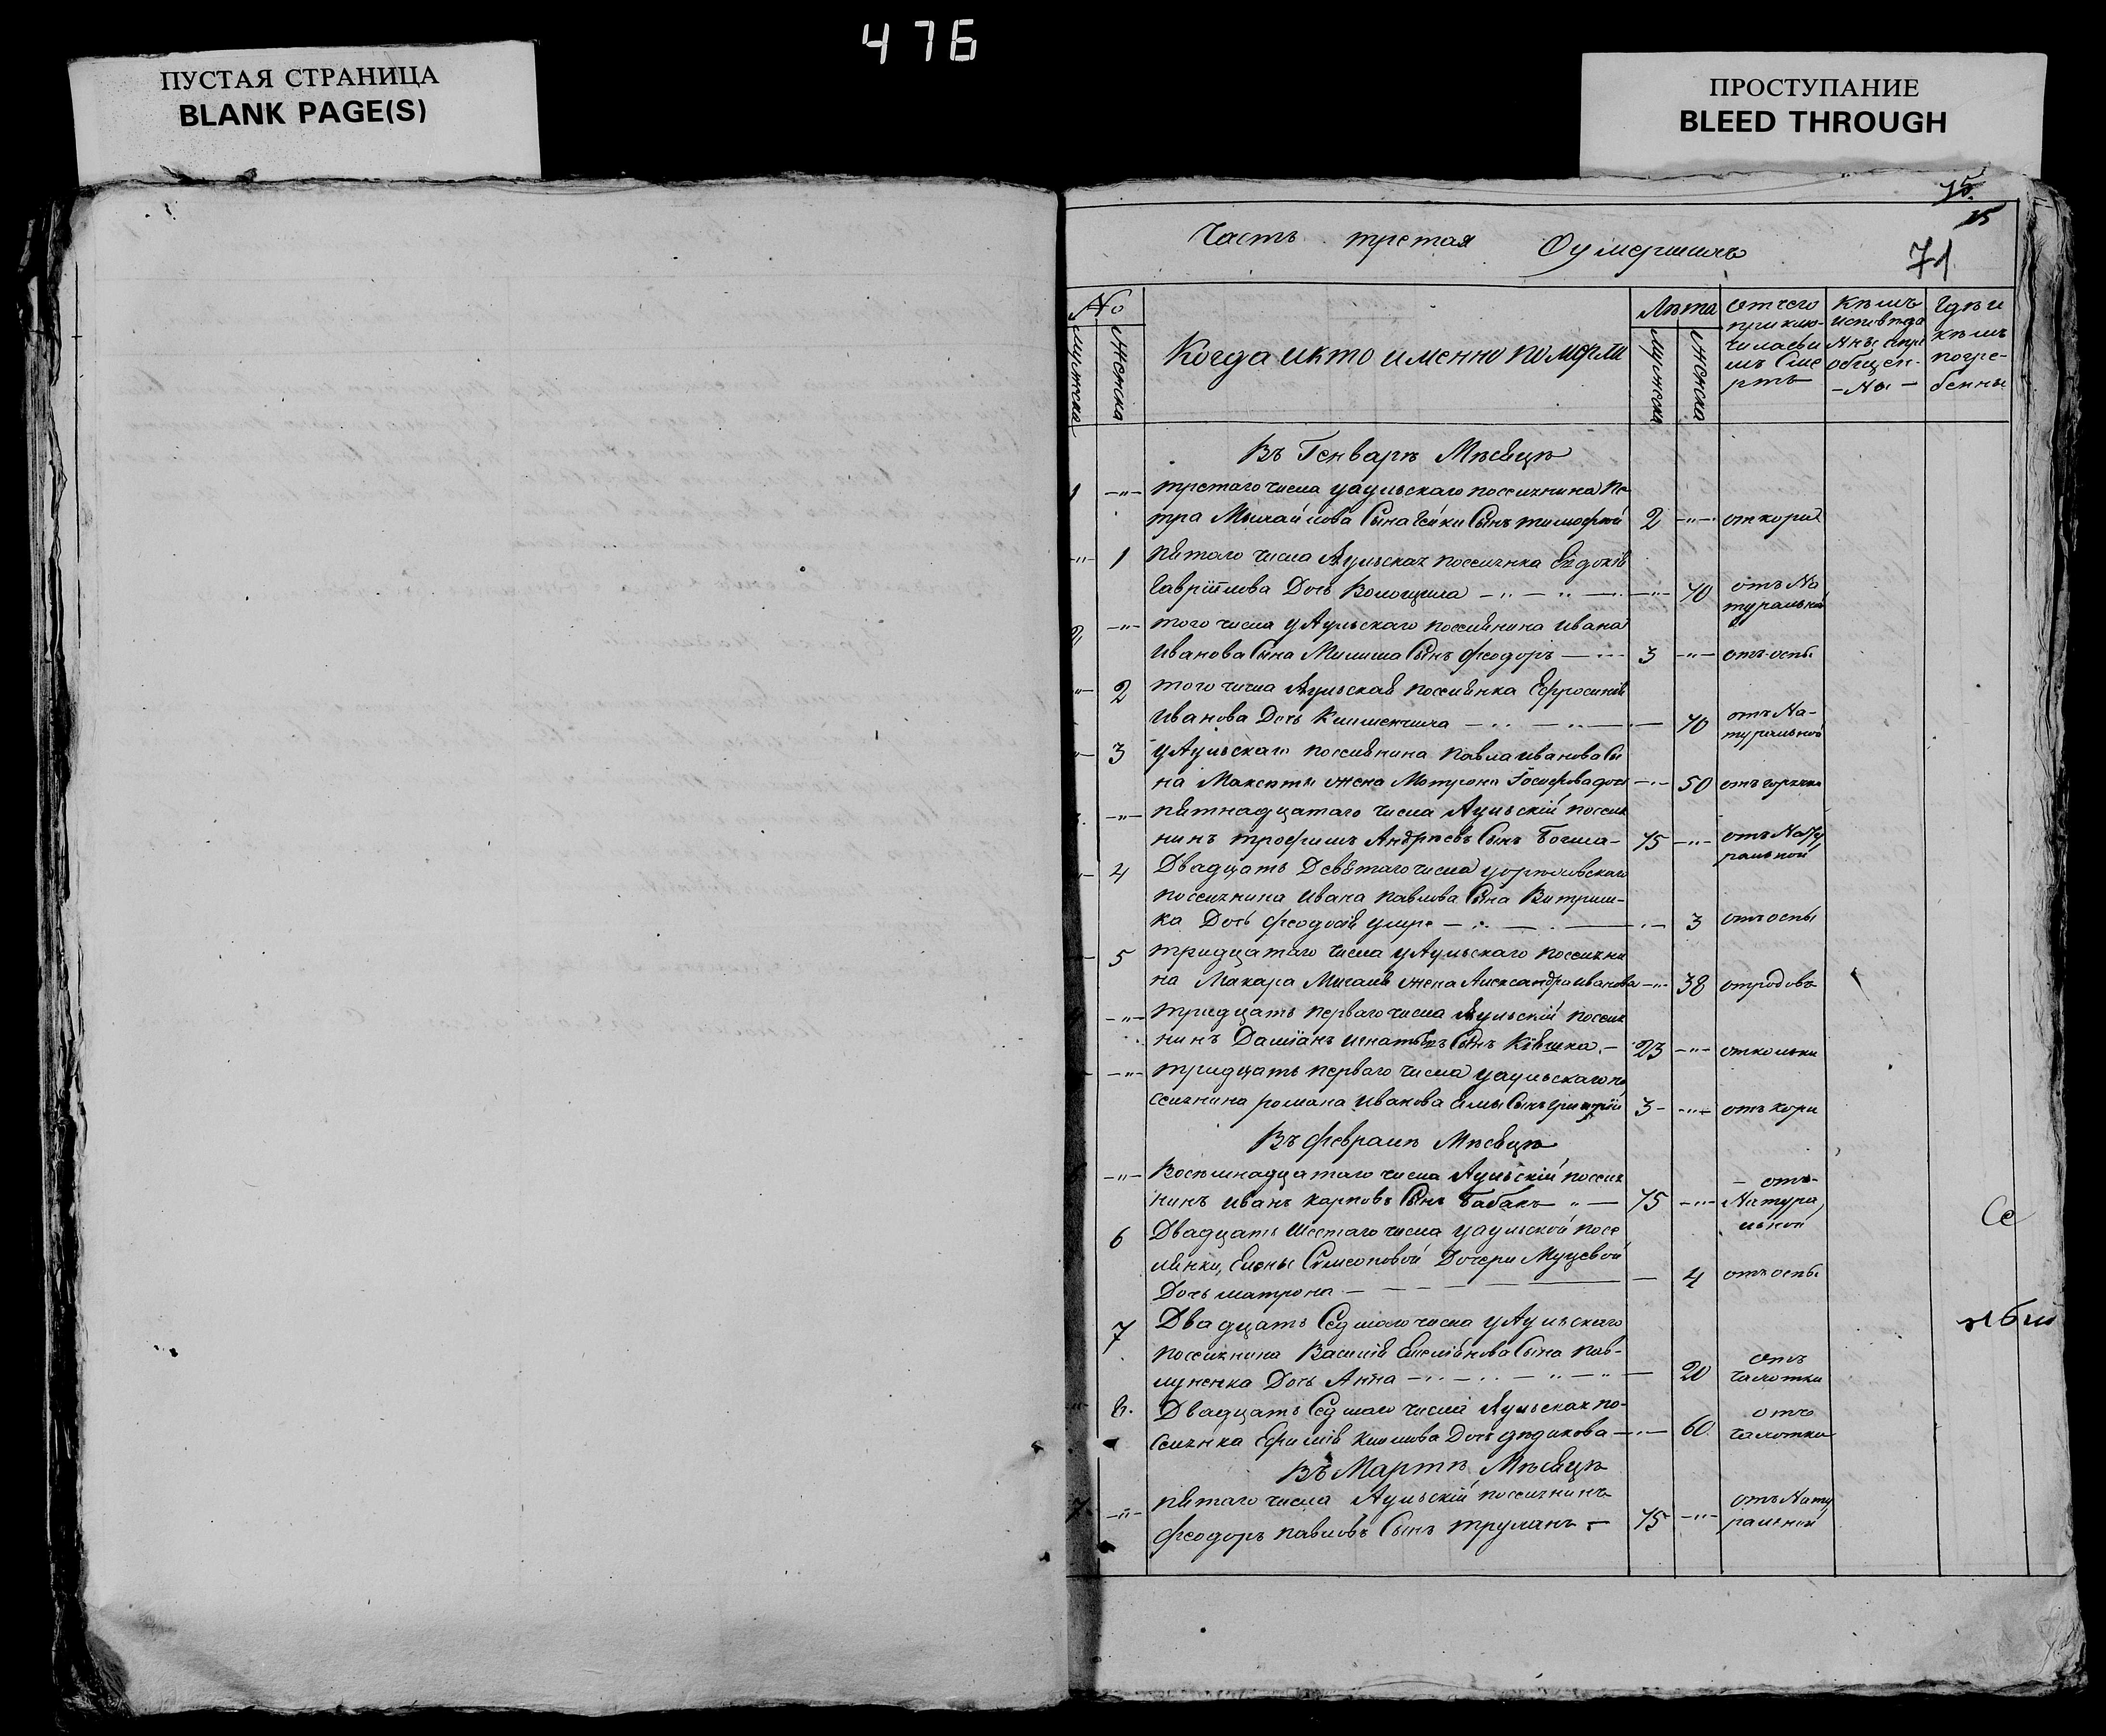 476
ПУСТАЯ СТРАНИЦА
BLANK PAGE(S)
ПРОСТУПАНИЕ
BLEED THROUGH
75
15
71
Часть третая О умершихъ
No
Лѣта
мужска
женска
Когда и кто именно померли
мужска
женска
отчего приклю-
чилась
Сме
рть
Кѣмъ
исповѣда
ны и при
общен-
-ны-
Гдѣ и
кѣмъ
погре-
бенны
Въ Генварѣ Мѣсяцѣ
1 третаго числа у аульскаго поселянина Пе
тра Михайлова Сына Сынъ тимофей 2 от кори
1 пятаго числа Аульская поселянка Евдокія
Гавріилова Дочь Волощила 70 отъ На
туральной
2 того числа у Аульскаго поселянина Ивана
Иванова Сына Сынъ Феодоръ 3 отъ оспы
2 того числа Аульская поселянка Ефросинія
Иванова Дочь 70 отъ На-
туральной
3 у Аульскаго поселянина Павла Иванова Сы
на Максюты жена Матрона Іосифова дочь 50 отъ горячки
пятнадцатаго числа Аульскій поселя
нинъ трофимъ Андреевъ Сынъ Богма- 75 отъ Нату
ральной
4 Двадцать Девятаго числа
поселянина Ивана Павлова Сына
ка Дочь Феодосія умре 3 отъ оспы
5 тридцатаго числа у Аульскаго поселяни
на Макара жена Александра Иванова 38 отродовъ
тридцать перваго числа Аульскій поселя
нинъ Даміанъ Игнатьевъ Сынъ Кіяшка 23 отколики
тридцать перваго числа у аульскаго по
селянина романа Иванова Сынъ 3 отъ кори
Въ Февралѣ Мѣсяцѣ
Восемнадцатаго числа Аульскій поселя
нинъ Иванъ Карповъ Сынъ Бабакъ 75 отъ
Натура
льной
6 Двадцать шестаго числа у аульской посе
лянки, Елены Симеоновой Дочери Муцевой
Дочь матрона 4 отъ оспы
7 Двадцать Седмаго числа у Аульскаго
поселянина Василія Емеліянова Сына Пав-
луненка Дочь Анна 20 отъ
чахотки
8. Двадцать Седмаго числа Аульская по-
селянка Ефимія Климова Дочь дядикова 60 отъ
чахотки
Въ Мартѣ Мѣсяцѣ
7 пятаго числа Аульскій поселянинъ
Феодоръ Павловъ Сынъ труханъ 75 отъ Нату
ральной